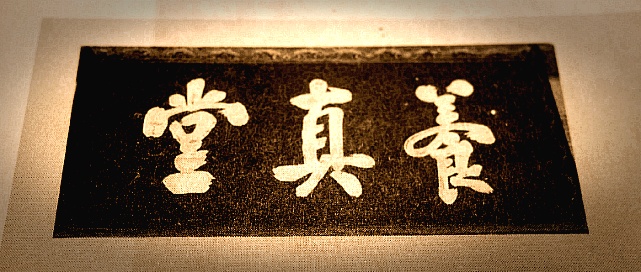 養真堂